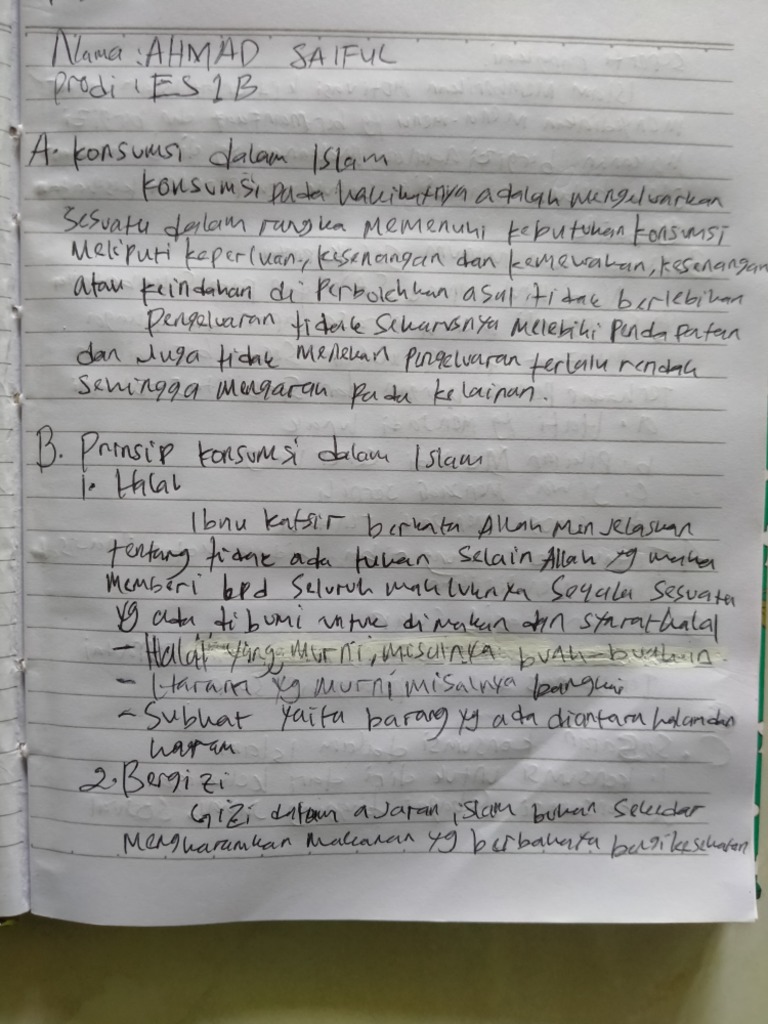 Nama : AHMAD SAIFUL
Prodi : ES 1 B
A. Konsumsi dalam Islam
Konsumsi pada hakikatnya adalah mengeluarkan
sesuatu dalam rangka memenuhi kebutuhan konsumsi
Meliputi keperluan, kesenangan dan kemewahan, kesenangan
atau keindahan di perbolehkan asal tidak berlebihan
Pengeluaran tidak seharusnya melebihi pendapatan
dan juga tidak menekan pengeluaran terlalu rendah
sehingga mengarah pada kelainan.
B. Prinsip konsumsi dalam Islam
1. Halal
Ibnu katsir berkata Allah menjelaskan
tentang tidak ada tuhan selain Allah yg maha
memberi kpd seluruh makhluknya segala sesuatu
yg ada di bumi untuk dimakan dan syarat halal
- Halal yang murni, misalnya buah-buahan.
- Haram yg murni misalnya bangkai
- Subhat yaitu barang yg ada diantara halal dan
haram
2. Bergizi
Gizi dalam ajaran islam bukan sekedar
Mengharamkan makanan yg berbahaya bagi kesehatan